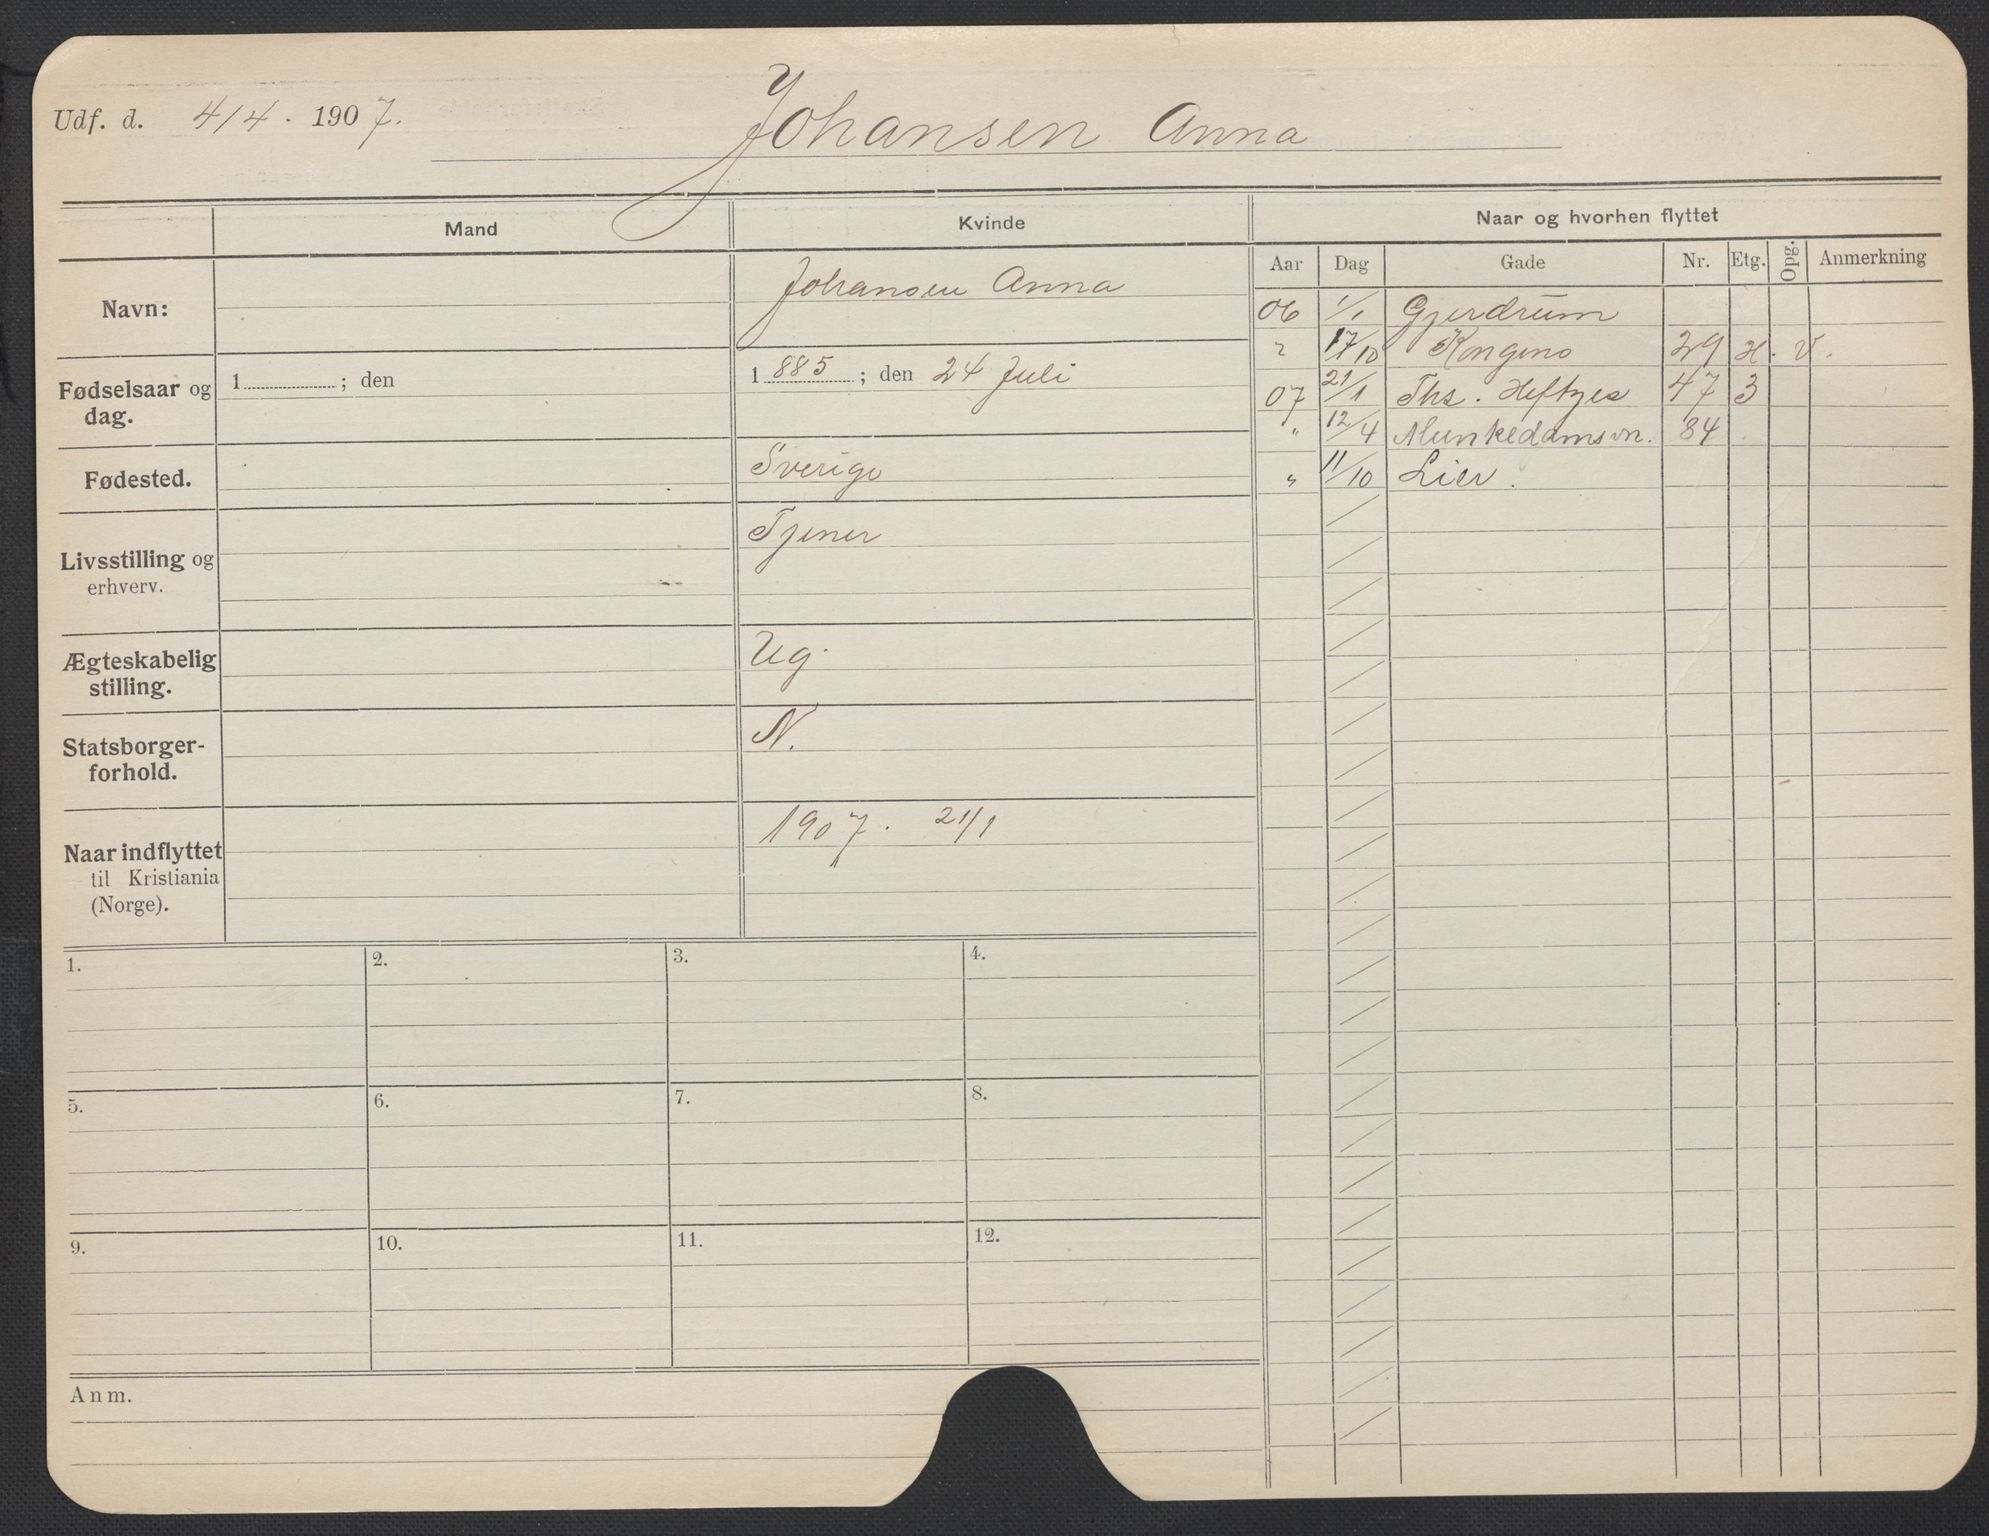 Udf. d. 4/4. 1907.
Johansen Anna
Mand
Kvinde
Naar og hvorhen flyttet
Aar Dag Gade Nr. Etg. Opg. Anmerkning
Navn:
Johansen Anna
06 1/1 Gjerdrum
" 17/10 Kongens 29 H. V.
Fødselsaar og dag.
1 ; den
1 885 ; den 24 Juli
07 21/1 Ths. Heftyes 47 3
" 12/4 Munkedamsvn. 84
Fødested.
Sverige
" 11/10 Lier.
Livsstilling og
erhverv.
Tjener
Ægteskabelig
stilling.
Ug.
Statsborger-
forhold.
N.
Naar indflyttet
til Kristiania
(Norge).
1907. 21/1
1. 2. 3. 4.
5. 6. 7. 8.
9. 10. 11. 12.
Anm.